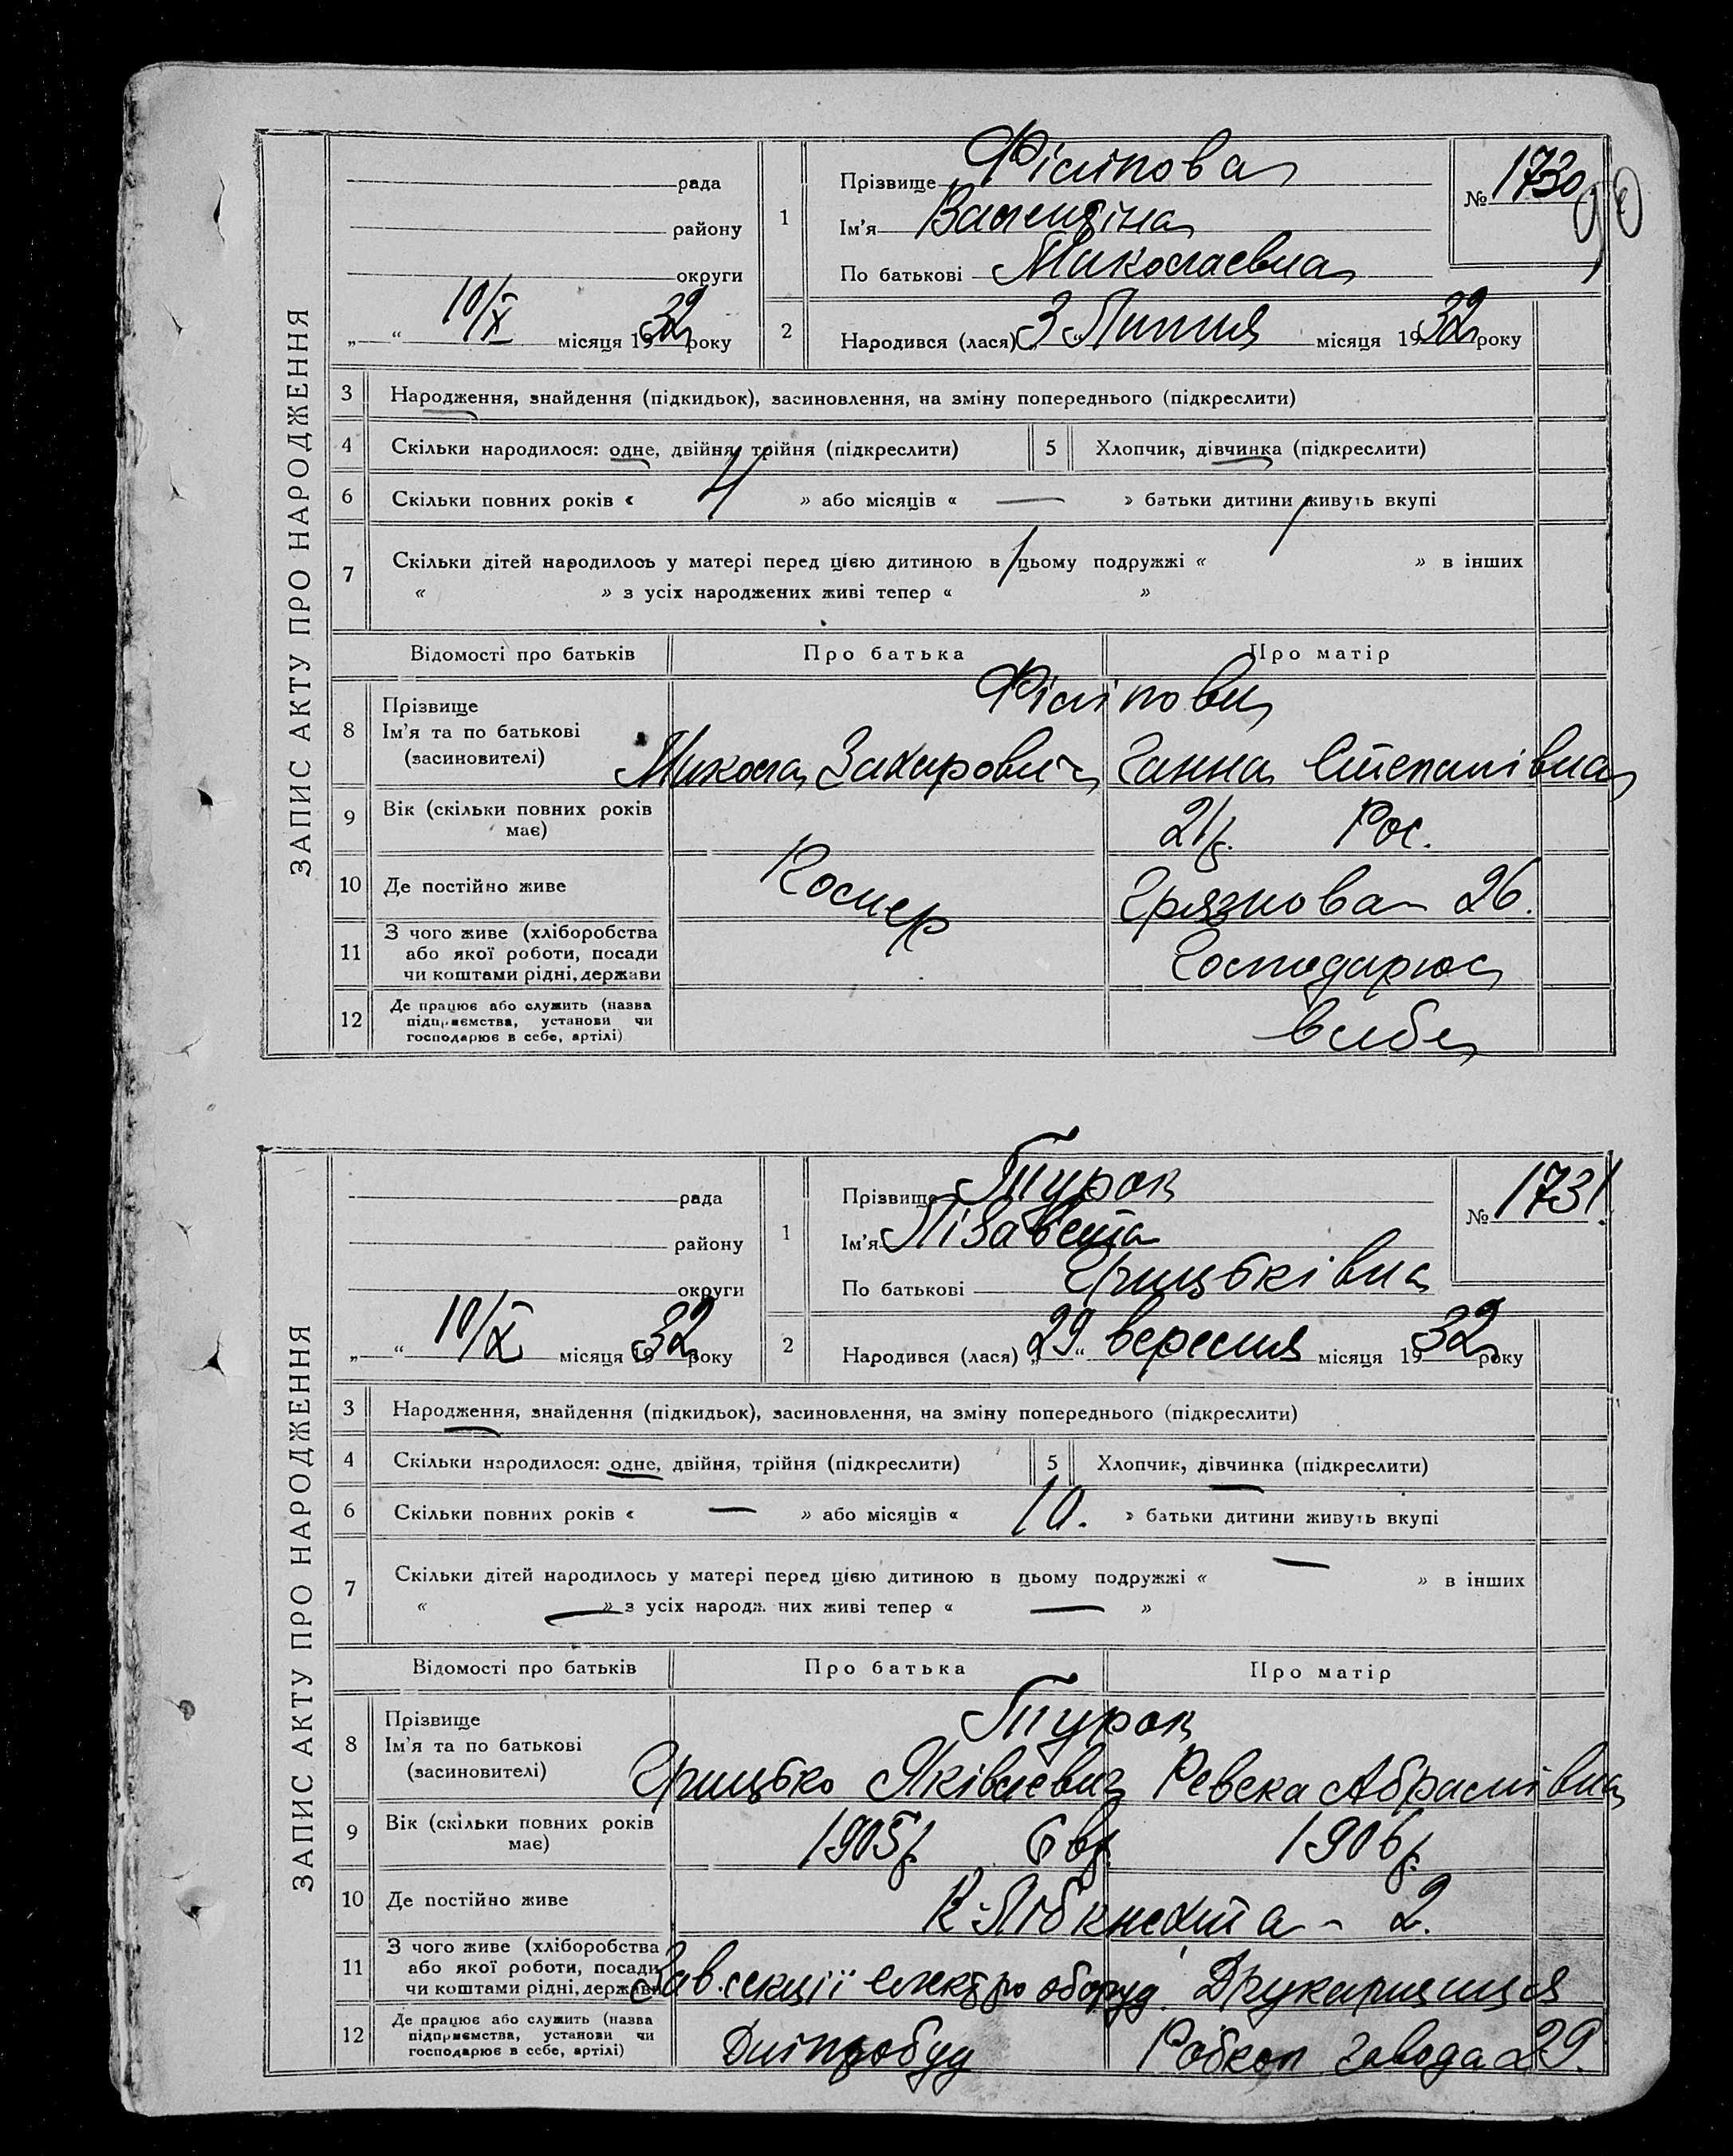 ЗАПИС АКТУ ПРО НАРОДЖЕННЯ
рада
району
округи
„ “ 10/X місяця 1932 року
1
Прізвище Філіпова
Ім'я Валентіна
По батькові Миколаевна
№ 1730
2
Народився (лася) „3“ Липня місяця 1932 року
3 Народження, знайдення (підкидьок), засиновлення, на зміну попереднього (підкреслити)
4 Скільки народилося: одне, двійня, трійня (підкреслити) 5 Хлопчик, дівчинка (підкреслити)
6 Скільки повних років « 4 » або місяців « — » батьки дитини живуть вкупі
7 Скільки дітей народилось у матері перед цією дитиною в цьому подружжі « » в інших
« » з усіх народжених живі тепер « »
Відомості про батьків Про батька Про матір
8 Прізвище
Ім'я та по батькові
(засиновителі)
Філіпови
Микола Захарович Ганна Степанівна
9 Вік (скільки повних років
має)
21р. Рос.
10 Де постійно живе
Грязнова - 26.
11 З чого живе (хліборобства
або якої роботи, посади
чи коштами рідні, держави
Господарює
12 Де працює або служить (назва
підприємства, установи чи
господарює в себе, артілі)
ЗАПИС АКТУ ПРО НАРОДЖЕННЯ
рада
району
округи
„ “ 10/X місяця 1932 року
1
Прізвище Турок
Ім'я Лізавета
По батькові Грицьківна
№ 1731.
2
Народився (лася) „29“ вересня місяця 1932 року
3 Народження, знайдення (підкидьок), засиновлення, на зміну попереднього (підкреслити)
4 Скільки народилося: одне, двійня, трійня (підкреслити) 5 Хлопчик, дівчинка (підкреслити)
6 Скільки повних років « — » або місяців « 10. » батьки дитини живуть вкупі
7 Скільки дітей народилось у матері перед цією дитиною в цьому подружжі « — » в інших
« — » з усіх народж них живі тепер « — »
Відомості про батьків Про батька Про матір
8 Прізвище
Ім'я та по батькові
(засиновителі)
Турок
Грицько Яківлевич Ревека Абрамівна
9 Вік (скільки повних років
має)
1905р Євр. 1906р.
10 Де постійно живе
К-Лібкнехта - 2.
11 З чого живе (хліборобства
або якої роботи, посади
чи коштами рідні, держави
Зав. секції електро оборуд. Друкарниця
12 Де працює або служить (назва
підприємства, установи чи
господарює в себе, артілі)
Дніпробуд Робкоп завода 29.